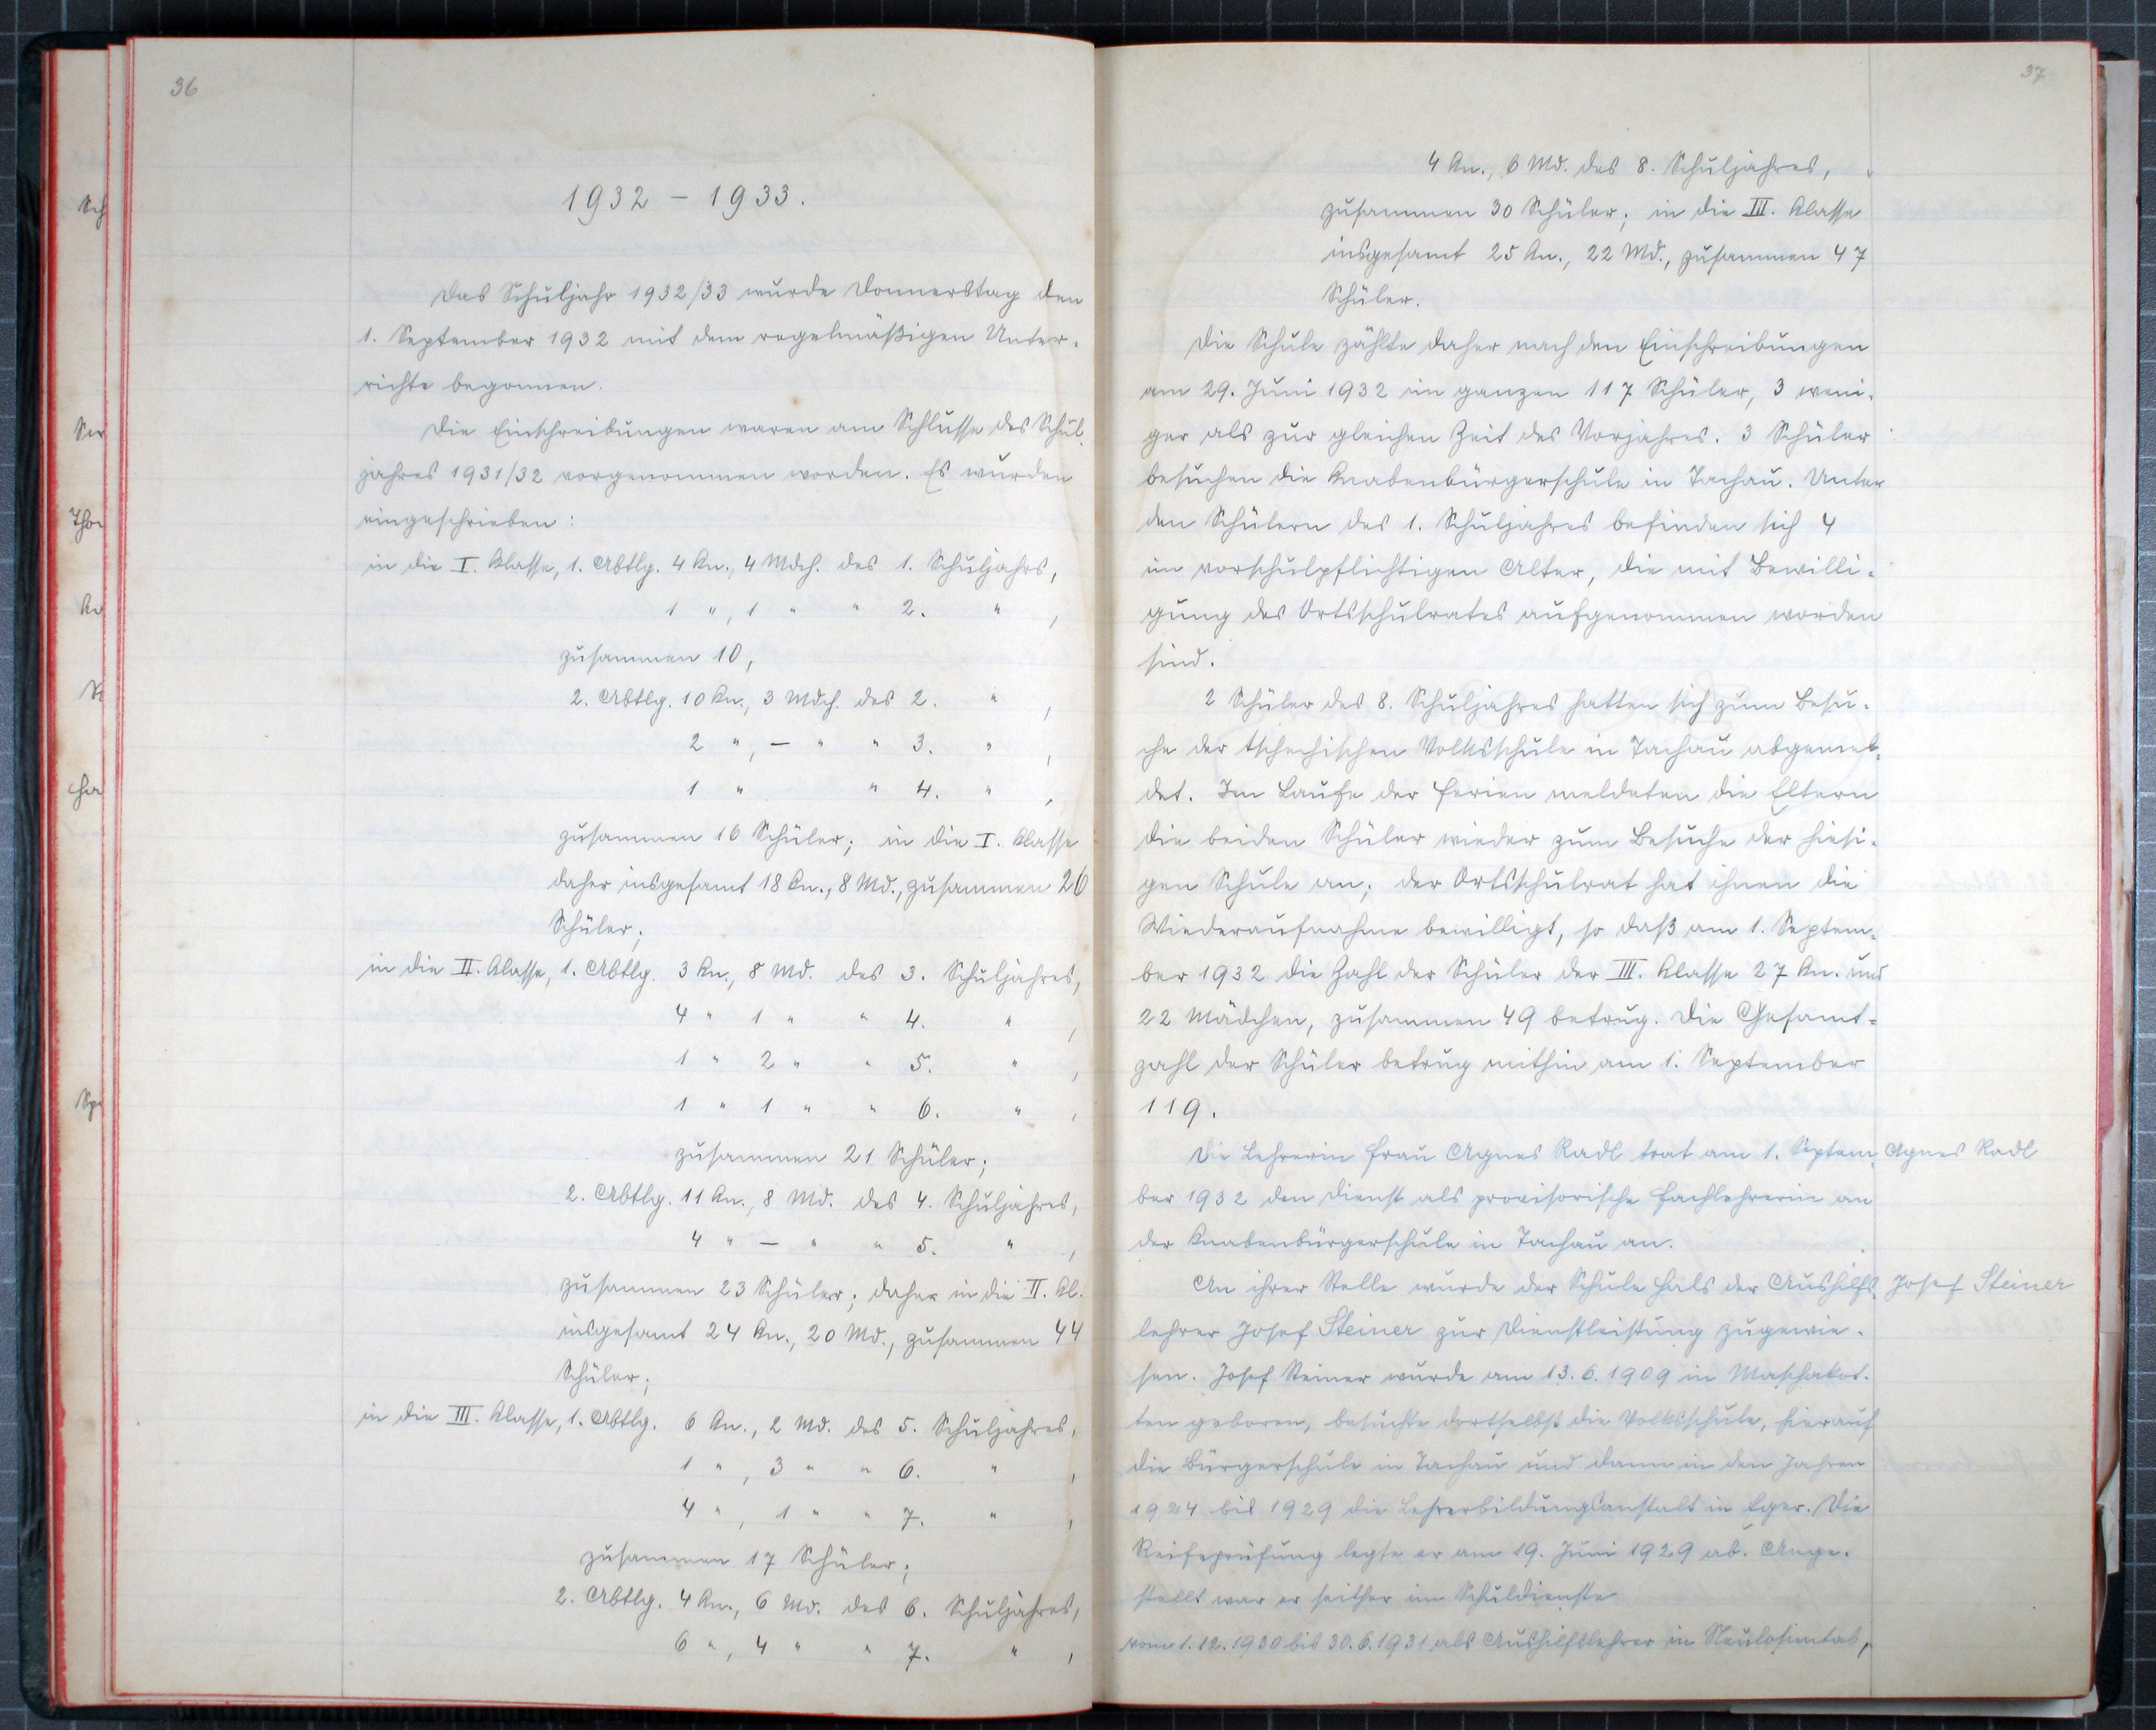 36
1932 – 1933.
Das Schuljahr 1932/33 wurde Donnerstag den
1. September 1932 mit dem regelmäßigen Unter-
richte begonnen.
Die Einschreibungen waren am Schlusse des Schul-
jahres 1931/32 vorgenommen worden. Es wurden
eingeschrieben:
in die I. Klasse, 1. Abtlg. 4 Kn., 4 Mdch. des 1. Schuljahrs,
1 ", 1 " " 2. " ,
zusammen 10,
2. Abtlg. 10 Kn., 3 Mdch. des 2. " ,
2 ", – " " 3. " ,
1 " " 4. " ,
zusammen 16 Schüler; in die I. Klasse
daher insgesamt 18 Kn., 8 Md., zusammen 26
Schüler;
in die II. Klasse, 1. Abtlg. 3 Kn., 8 Md. des 3. Schuljahres,
4 " 1 " " 4. " ,
1 " 2 " " 5. " ,
1 " 1 " " 6. " ,
zusammen 21 Schüler;
2. Abtlg. 11 Kn., 8 Md. des 4. Schuljahres,
4 " – " " 5. " ,
zusammen 23 Schüler; daher in die II. Kl.
insgesamt 24 Kn., 20 Md., zusammen 44
Schüler;
in die III. Klasse, 1. Abtlg. 6 Kn., 2 Md. des 5. Schuljahres,
1 ", 3 " " 6. " ,
4 ", 1 " " 7. " ,
zusammen 17 Schüler;
2. Abtlg. 4 Kn., 6 Md. des 6. Schuljahres,
6 ", 4 " " 7. " ,
37
4 Kn., 6 Md. des 8. Schuljahres,
zusammen 30 Schüler; in die III. Klasse
insgesamt 25 Kn., 22 Md., zusammen 47
Schüler.
Die Schule zählte daher nach den Einschreibungen
am 29. Juni 1932 im ganzen 117 Schüler, 3 weni-
ger als zur gleichen Zeit des Vorjahres. 3 Schüler
besuchen die Knabenbürgerschule in Tachau. Unter
den Schülern des 1. Schuljahres befinden sich 4
im vorschulpflichtigen Alter, die mit Bewilli-
gung des Ortsschulrates aufgenommen worden
sind.
2 Schüler des 8. Schuljahres hatten sich zum Besu-
che der tschechischen Volksschule in Tachau abgemel-
det. Im Laufe der Ferien meldeten die Eltern
die beiden Schüler wieder zum Besuche der hiesi-
gen Schule an; der Ortsschulrat hat ihnen die
Wiederaufnahme bewilligt, so daß am 1. Septem-
ber 1932 die Zahl der Schüler der III. Klasse 27 Kn. und
22 Mädchen, zusammen 49 betrug. Die Gesamt-
zahl der Schüler betrug mithin am 1. September
119.
Die Lehrerin Frau Agnes Radl trat am 1. Septem-
Agnes Radl
ber 1932 den Dienst als provisorische Fachlehrerin an
der Knabenbürgerschule in Tachau an.
An ihrer Stelle wurde der Schule Hals der Aushilfs-
Josef Steiner
lehrer Josef Steiner zur Dienstleistung zugewie-
sen. Josef Steiner wurde am 13. 6. 1909 in Maschakot-
ten geboren, besuchte dortselbst die Volksschule, hierauf
die Bürgerschule in Tachau und dann in den Jahren
1924 bis 1929 die Lehrerbildungsanstalt in Eger. Die
Reifeprüfung legte er am 19. Juni 1929 ab. Ange-
stellt war er seither im Schuldienste
vom 1. 12. 1930 bis 30. 6. 1931 als Aushilfslehrer in Neulosimtal,